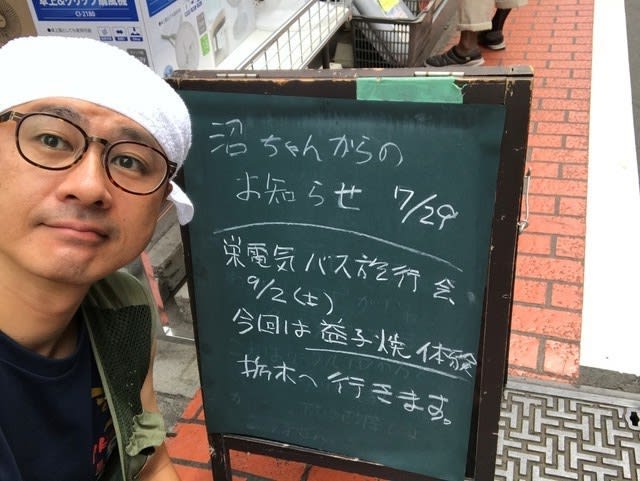 卓上&クリップ扇風機
CI-2180
沼ちゃんからの
お知らせ 7/29
栄電気バス旅行会
9/2(土)
今回は益子焼体験
栃木へ行きます。